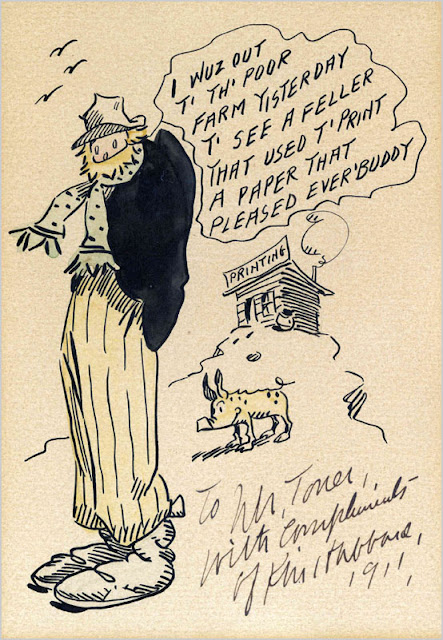 I WUZ OUT
T' TH' POOR
FARM YISTERDAY
T' SEE A FELLER
THAT USED T' PRINT
A PAPER THAT
PLEASED EVER'BUDDY
PRINTING
To Mr. Toner,
with compliments
of Kin Hubbard,
1911,